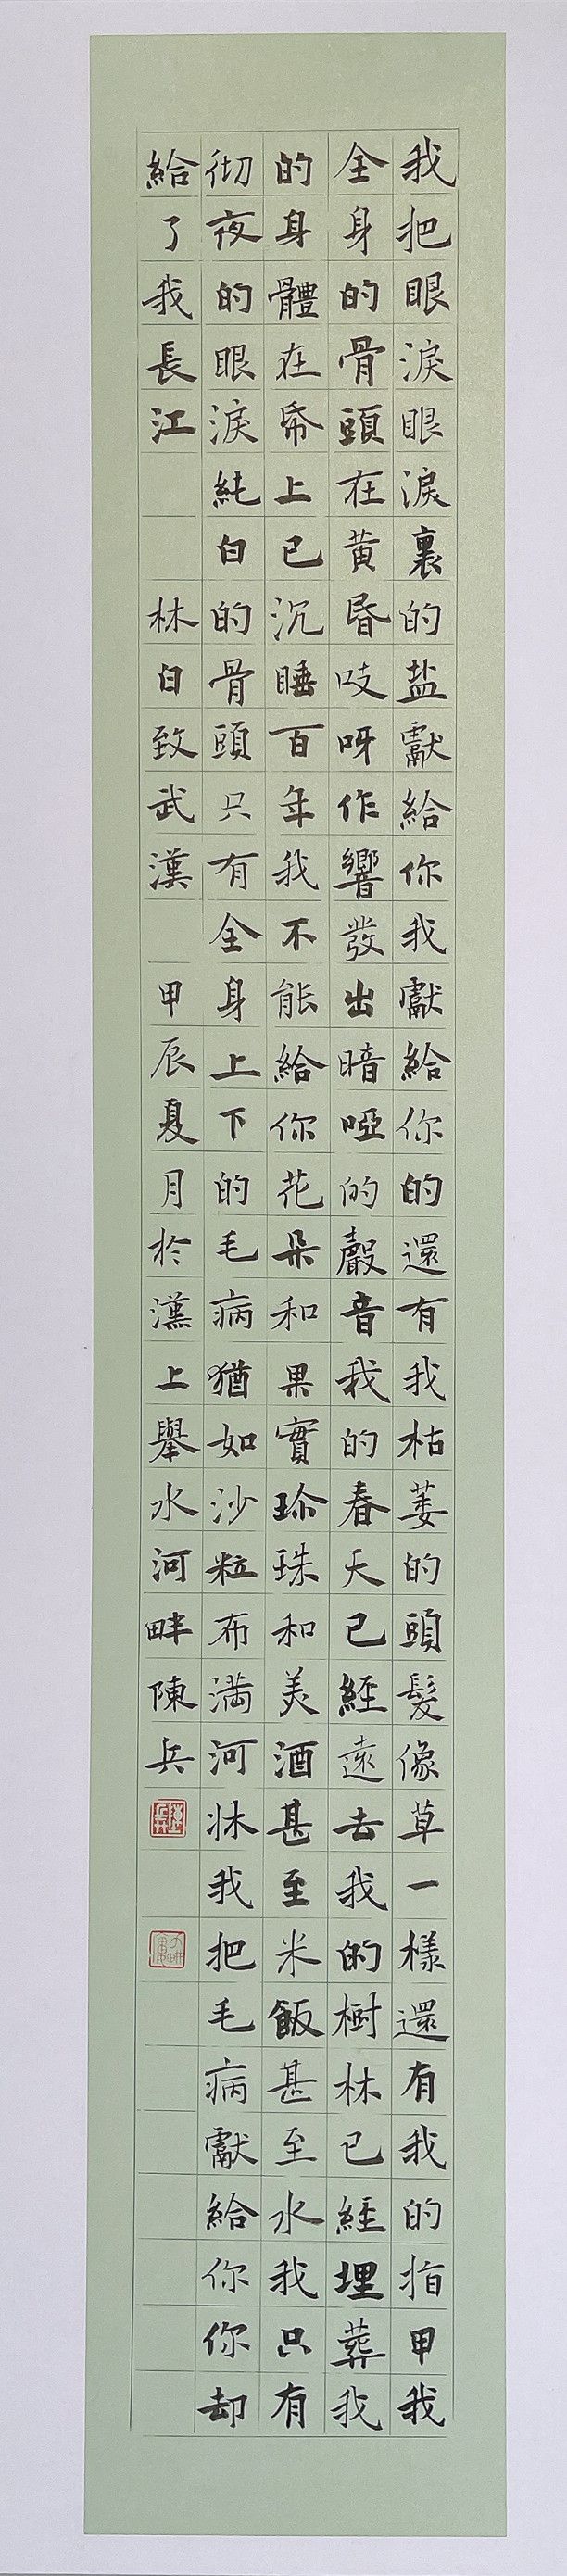 我把眼淚眼淚裏的盐獻給你我獻給你的還有我枯萎的頭髮像草一樣還有我的指甲我
全身的骨頭在黃昏吱呀作響發出暗啞的聲音我的春天已經遠去我的樹林已經埋葬我
的身體在帋上已沉睡百年我不能給你花朵和果實珎珠和美酒甚至米飯甚至水我只有
彻夜的眼淚純白的骨頭只有全身上下的毛病猶如沙粒布满河牀我把毛病獻給你你却
給了我長江 林白致武漢 甲辰夏月於漢上舉水河畔陳兵